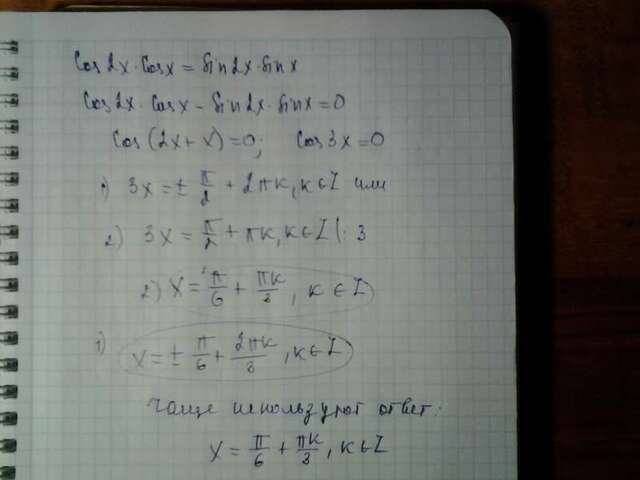 Cos 2x · Cosx = Sin2x · Sin x
Cos2x · Cosx - Sin2x · Sinx = 0
Cos (2x + x) = 0; Cos 3x = 0
1) 3x = ± π/2 + 2πk, k ∈ Z или
2) 3x = π/2 + πk, k ∈ Z |: 3
2) x = π/6 + πk/3, k ∈ Z
1) x = ± π/6 + 2πk/3, k ∈ Z
чаще используют ответ:
x = π/6 + πk/3, k ∈ Z